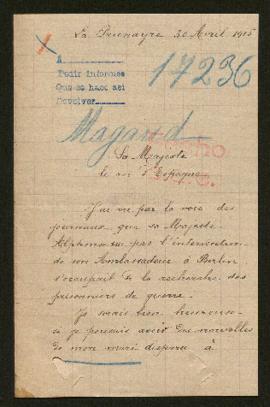 La Prunayre 30 Avril 1915
A
Pedir informes
Que se hace así
Devolver
17236
Magaud
Sa Majesté
le roi d'Espagne
J'ai vu par la voie des
journaux que sa Majesté
Alphonse XIII par l'intervention
de son Ambassadeur à Berlin
s'occupait de la recherche des
prisonniers de guerre.
Je serais bien heureuse
si je pouvais avoir des nouvelles
de mon mari disparu à